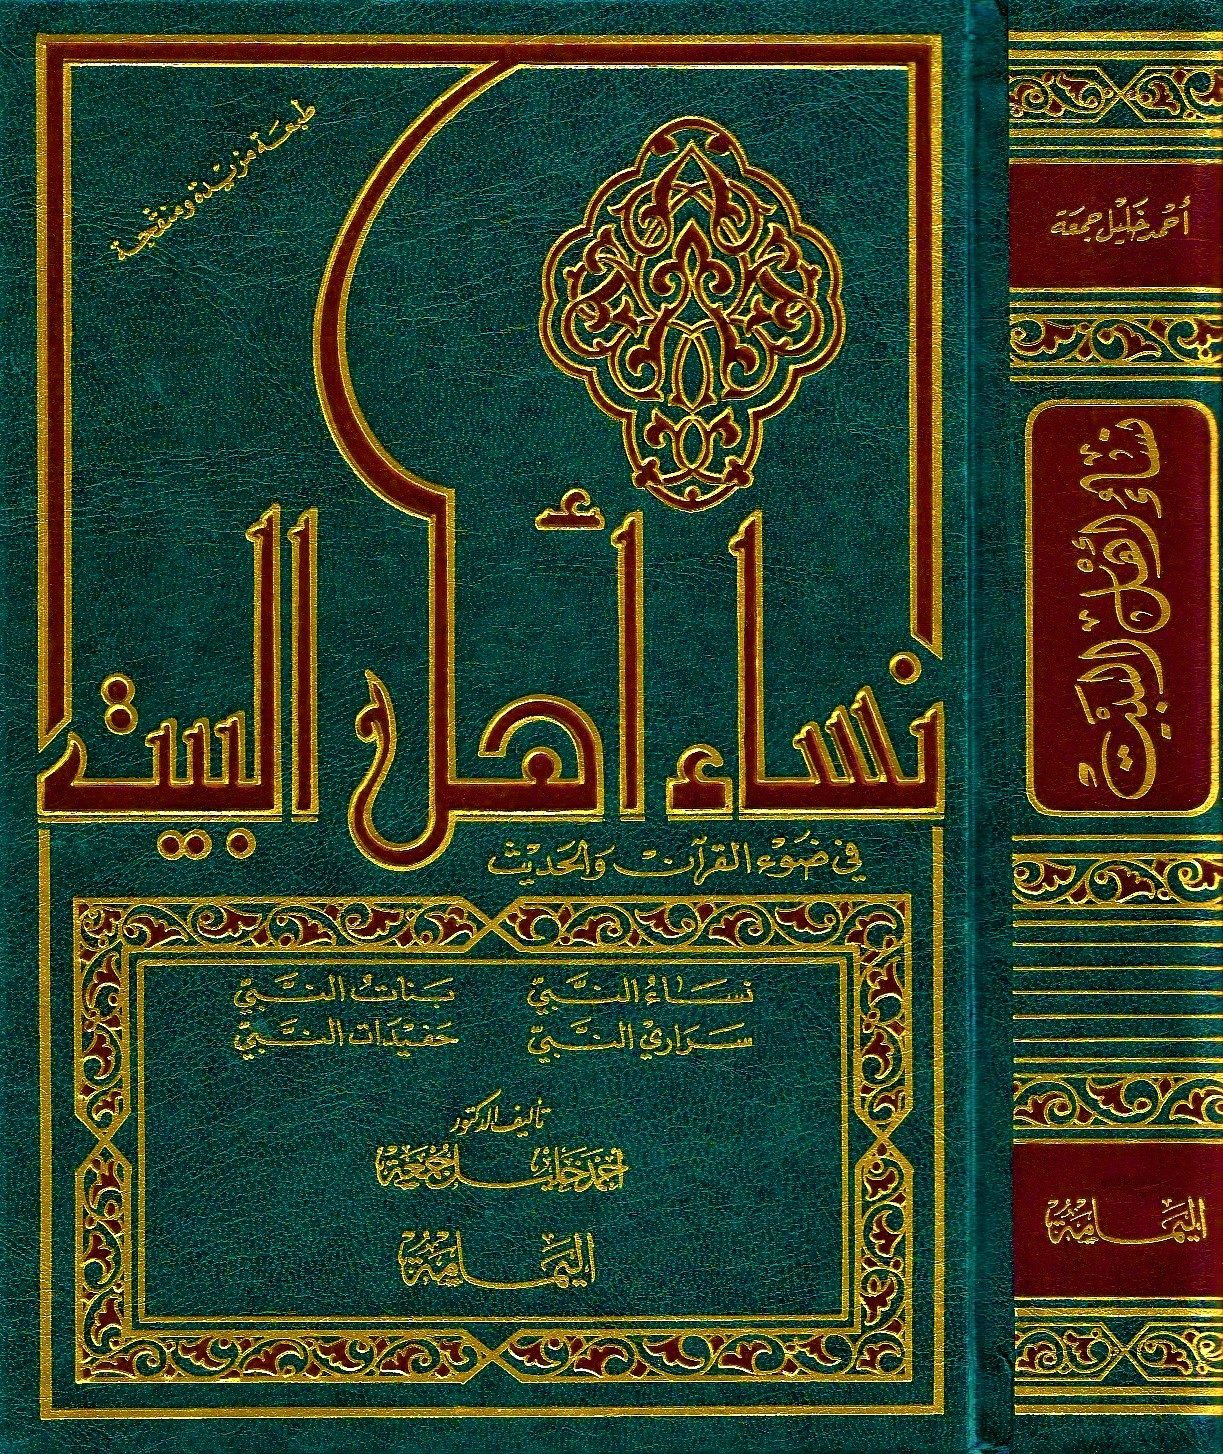 طبعة مزيدة ومنقحة
نساء أهل البيت
في ضَوْء القرآن وَالحَديث
نسَاءُ النَّبيّ
بَنات النَّبيّ
سَرَاري النَّبيّ
حَفيْدَات النَّبيّ
تأليف الدكتور
أحمَد خَليل جُمعَة
اليَمَامَة
أحْمَد خَليْل جمعَة
نسَاءُ أهْل البَيْت
اليَمَامَة